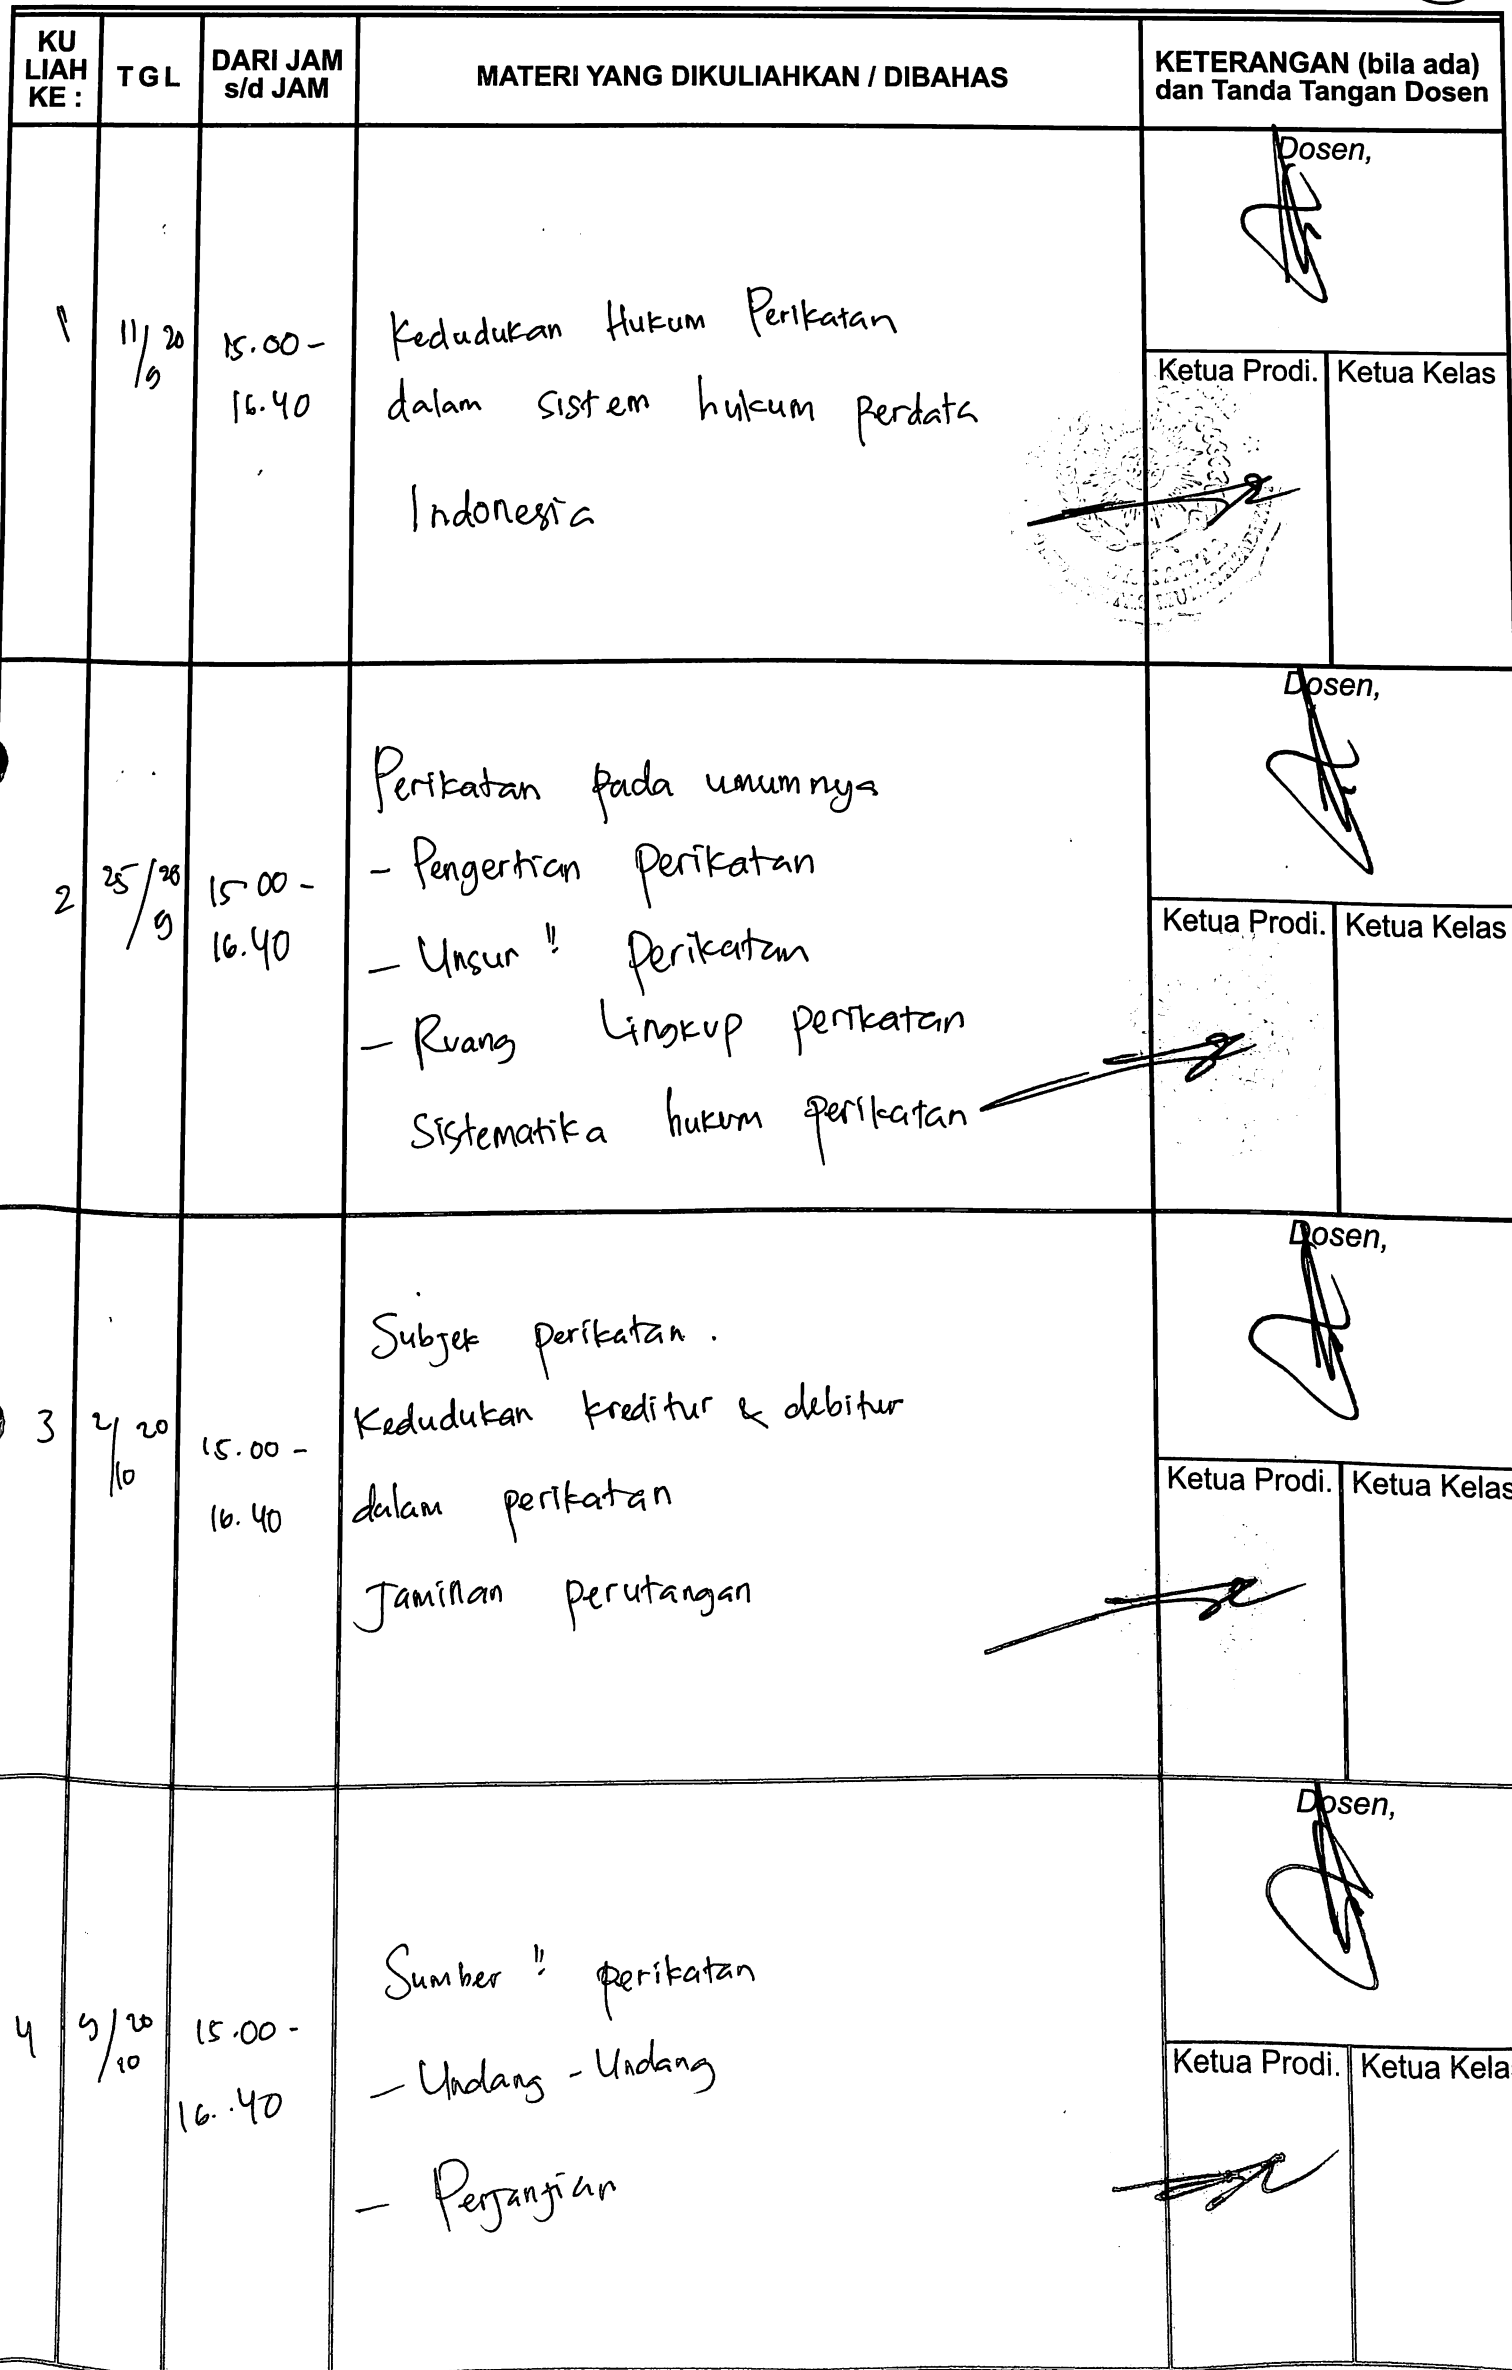 KU
LIAH
KE :
TGL
DARI JAM
s/d JAM
MATERI YANG DIKULIAHKAN / DIBAHAS
KETERANGAN (bila ada)
dan Tanda Tangan Dosen
1
11/9 20
15.00 -
16.40
Kedudukan Hukum Perikatan
dalam sistem hukum perdata
Indonesia
Dosen,
Ketua Prodi.
Ketua Kelas
2
25/9 20
15 00 -
16.40
Perikatan pada umumnya
- Pengertian perikatan
- Unsur " perikatan
- Ruang Lingkup perikatan
Sistematika hukum perikatan
Dosen,
Ketua Prodi.
Ketua Kelas
3
2/10 20
15.00 -
16.40
Subjek perikatan.
Kedudukan kreditur & debitur
dalam perikatan
Jaminan perutangan
Dosen,
Ketua Prodi.
Ketua Kelas
4
9/10 20
15.00 -
16.40
Sumber " perikatan
- Undang - Undang
- Perjanjian
Dosen,
Ketua Prodi.
Ketua Kela